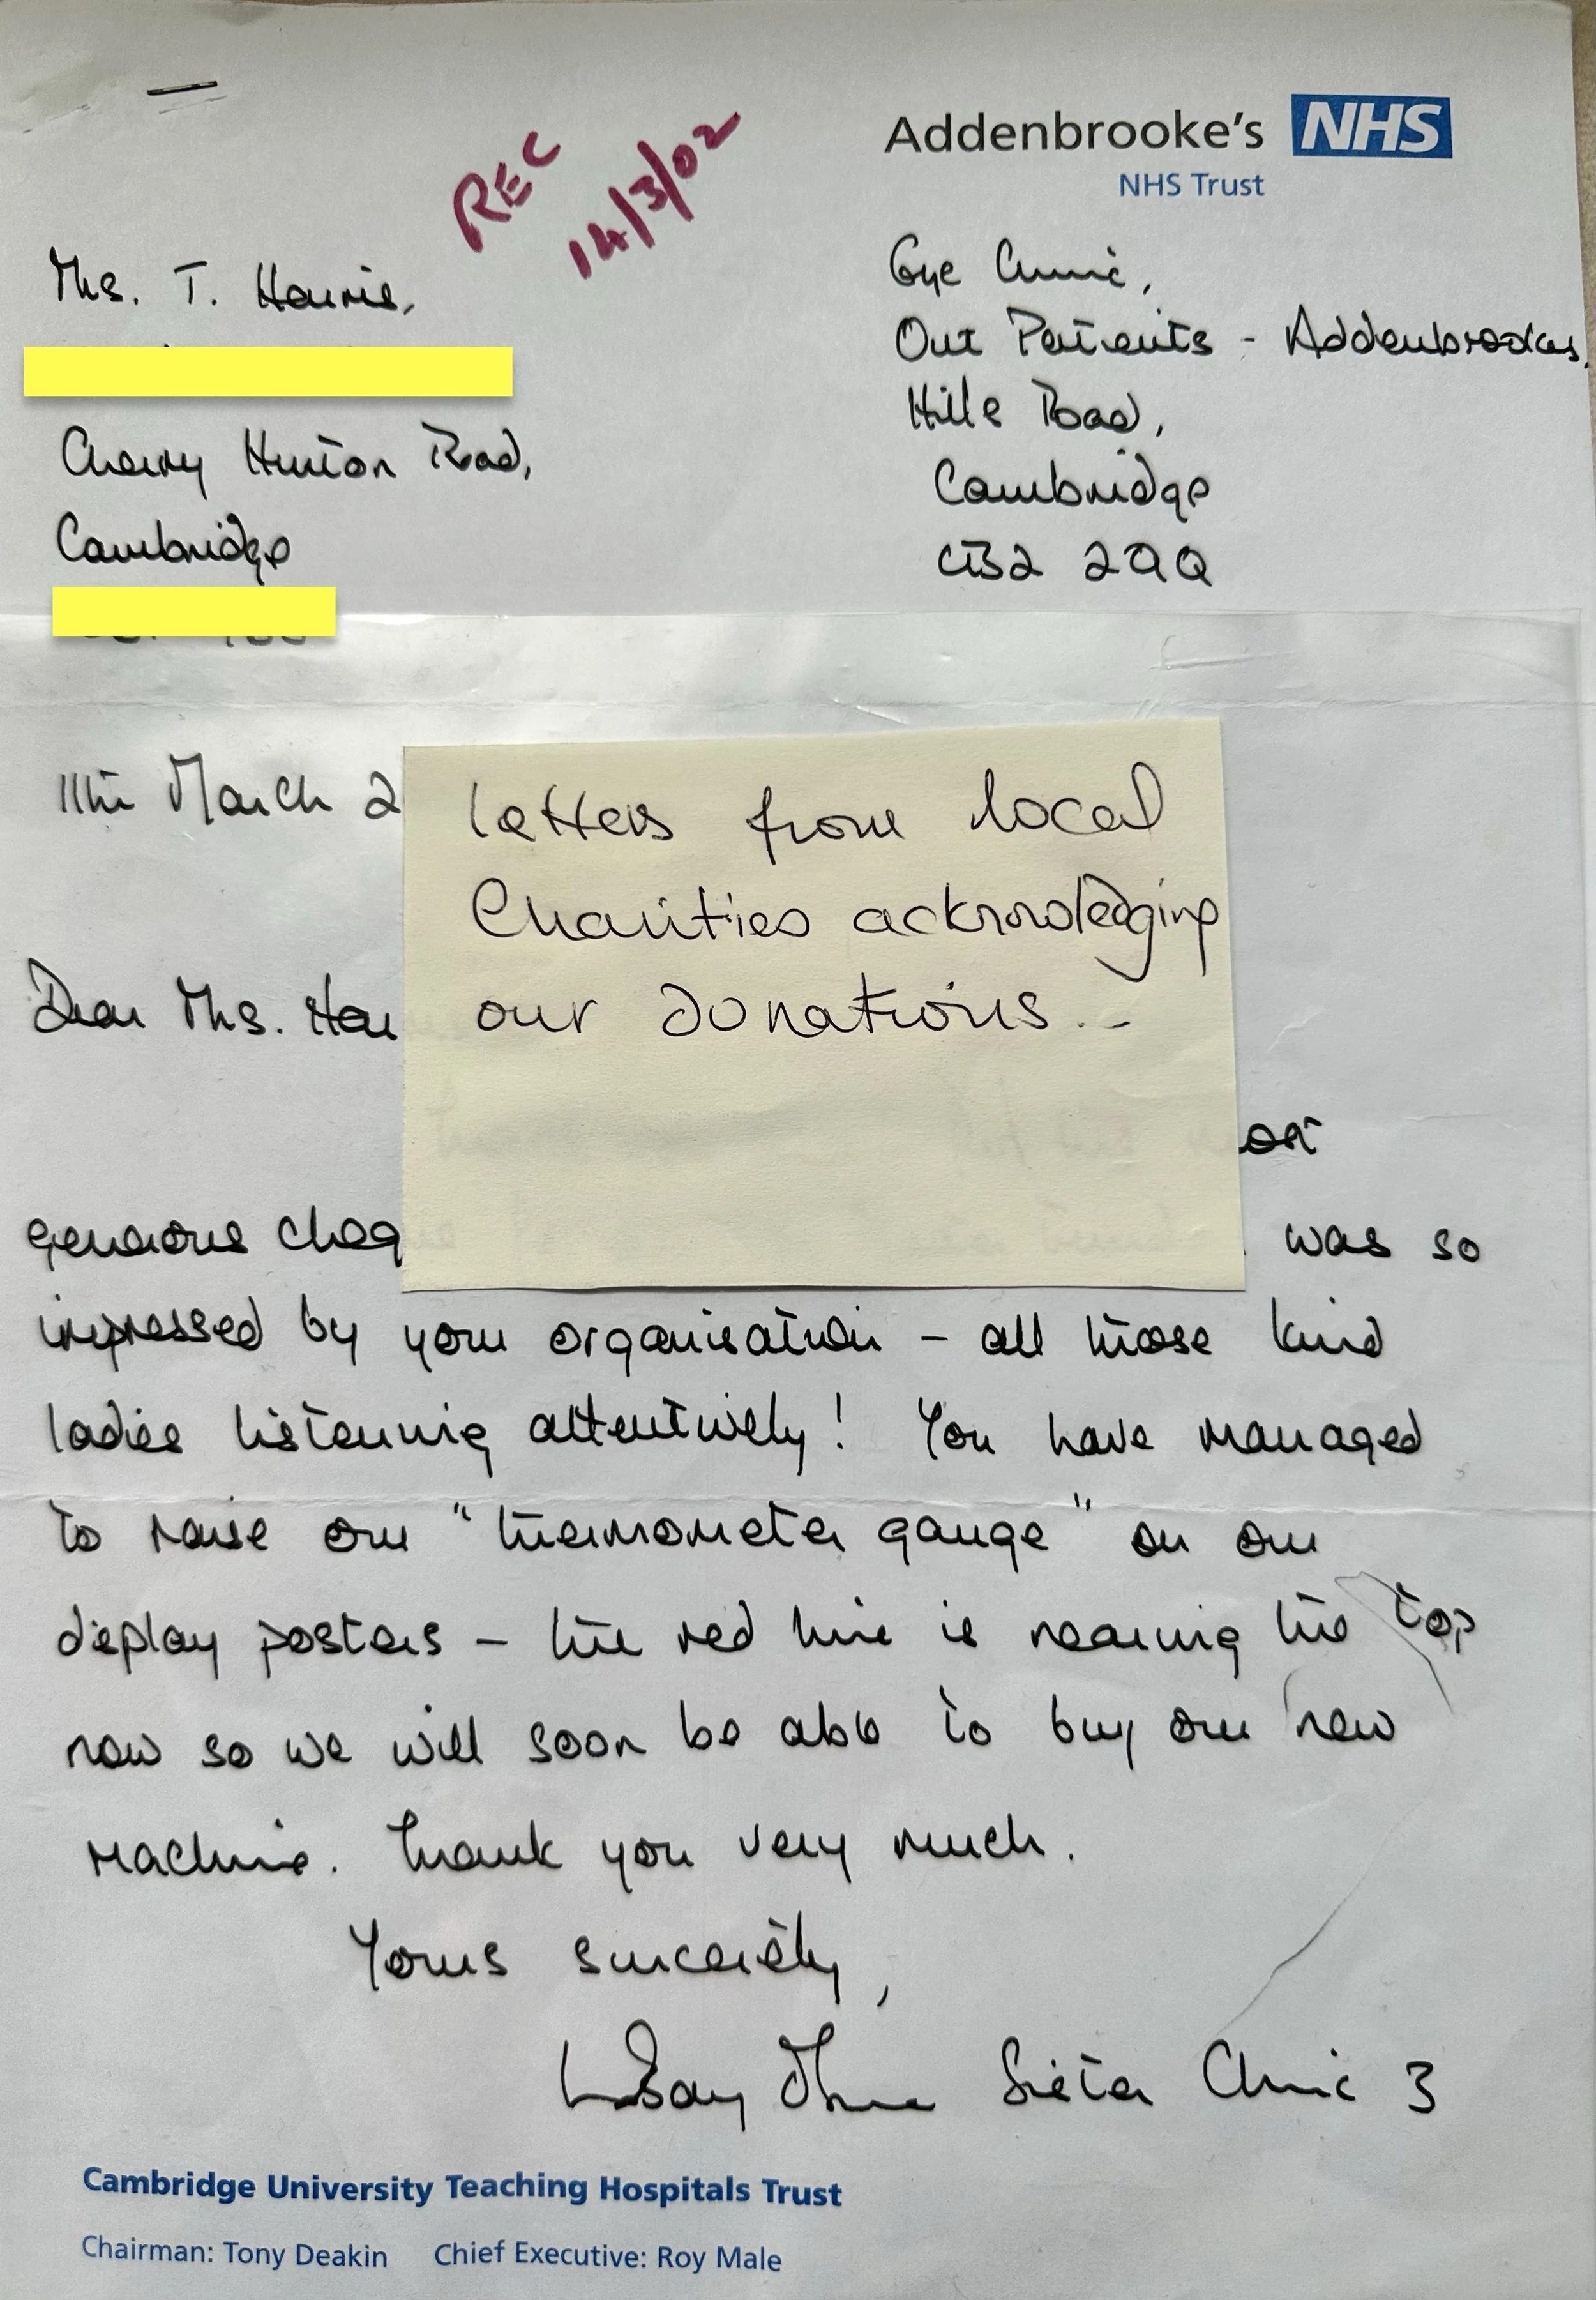 Addenbrooke's NHS
NHS Trust
REC
14/3/02
Mrs. T. Harris,
Cherry Hinton Road,
Cambridge
Eye Clinic,
Out Patients - Addenbrookes,
Hills Road,
Cambridge
CB2 2QQ
11th March 2
letters from local
Charities acknowledging
our donations..
Dear Mrs. Har
generous cheq was so
impressed by your organisation - all those kind
ladies listening attentively! You have managed
to raise our "thermometer gauge" on our
display posters - the red line is nearing the top
now so we will soon be able to buy our new
machine. Thank you very much.
Yours sincerely,
Sister Clinic 3
Cambridge University Teaching Hospitals Trust
Chairman: Tony Deakin Chief Executive: Roy Male